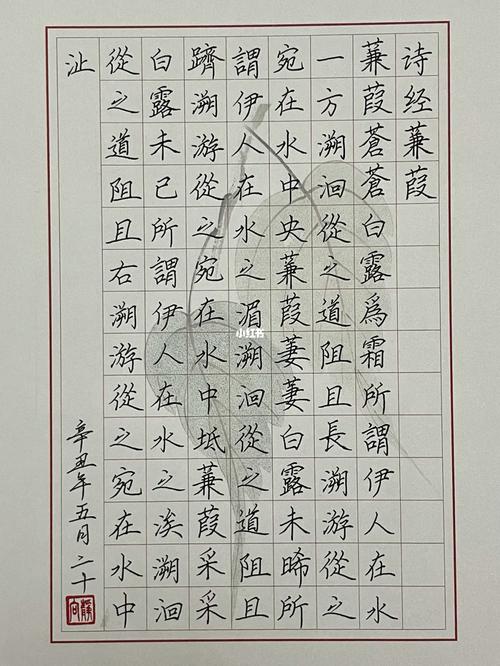 诗经蒹葭
蒹葭蒼蒼白露爲霜所謂伊人在水
一方溯洄從之道阻且長溯游從之
宛在水中央蒹葭萋萋白露未晞所
謂伊人在水之湄溯洄從之道阻且
躋溯游從之宛在水中坻蒹葭采采
白露未已所謂伊人在水之涘溯洄
從之道阻且右溯游從之宛在水中
沚
辛丑年五月二十
小红书